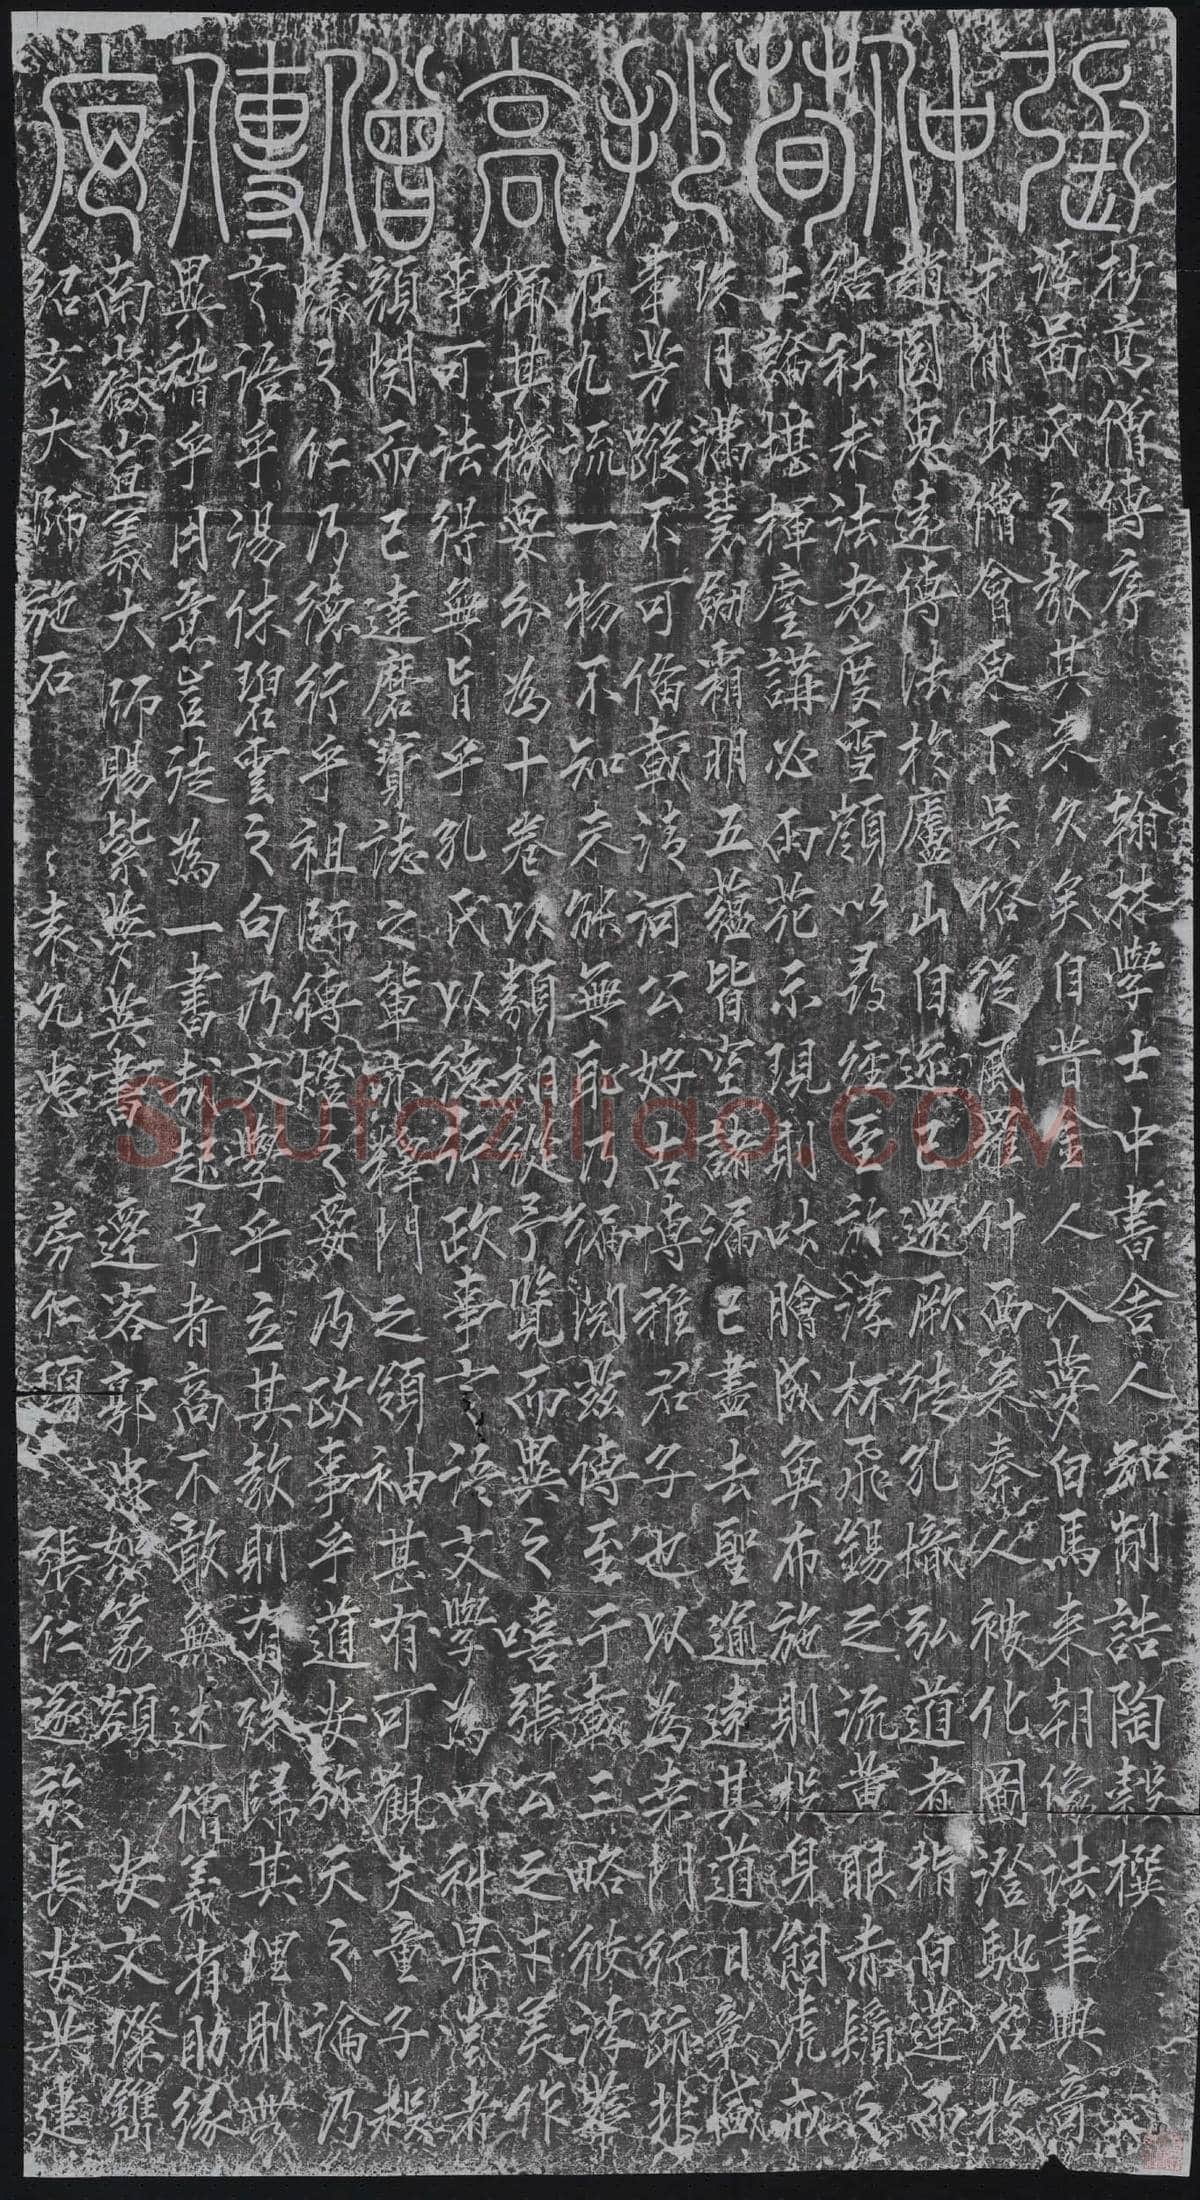 張仲荀抄高僧傳序
抄高僧傳序 翰林學士中書舍人知制誥陶穀撰
浮啚氏之教其來久矣自昔金人入夢白馬来朝像法聿興奇
才間出僧會東下吳俗從風羅什西來秦人被化圖澄馳名於
趙國惠遠傳法於廬山自迩已還厥徒孔熾弘道者指白蓮而
結社求法者度雪嶺以尋經至於浮杯飛錫之流黃眼赤鬚之
士論堪揮麈講必雨花示現則呿膾成魚布施則投身飼虎戒
珠月滿慧劒霜明五蘊皆空諸漏已盡去聖逾遠其道日彰盛
事芳蹤不可備載清河公好古博雅君子也以為桑門行跡非
在九流一物不知夫能無耻乃徧閱茲傳至于數三略彼浮華
撮其機要分為十卷以類相從予覽而異之嘻張公之才美作
事可法得無旨乎孔氏以德行政事言語文學為四科杲崇者
顏閔而已達磨寶誌之輩亦釋門之領袖甚有可觀夫童子類
蟻之仁乃德行乎祖師傳燈之娿乃政事乎道安弥天之論乃
言語乎湯休碧雲之句乃文學乎立其教則有殊歸其理則無
異稽乎月旦豈徒為一書哉起予者商不敢無述 僧義省助緣
南嶽宣義大師賜紫夢英書 逰客郭忠恕篆額 安文璨鐫
紹玄大師施石 袁允忠 房仁琼 張仁遂於長安共建
Shufaziliao.COM